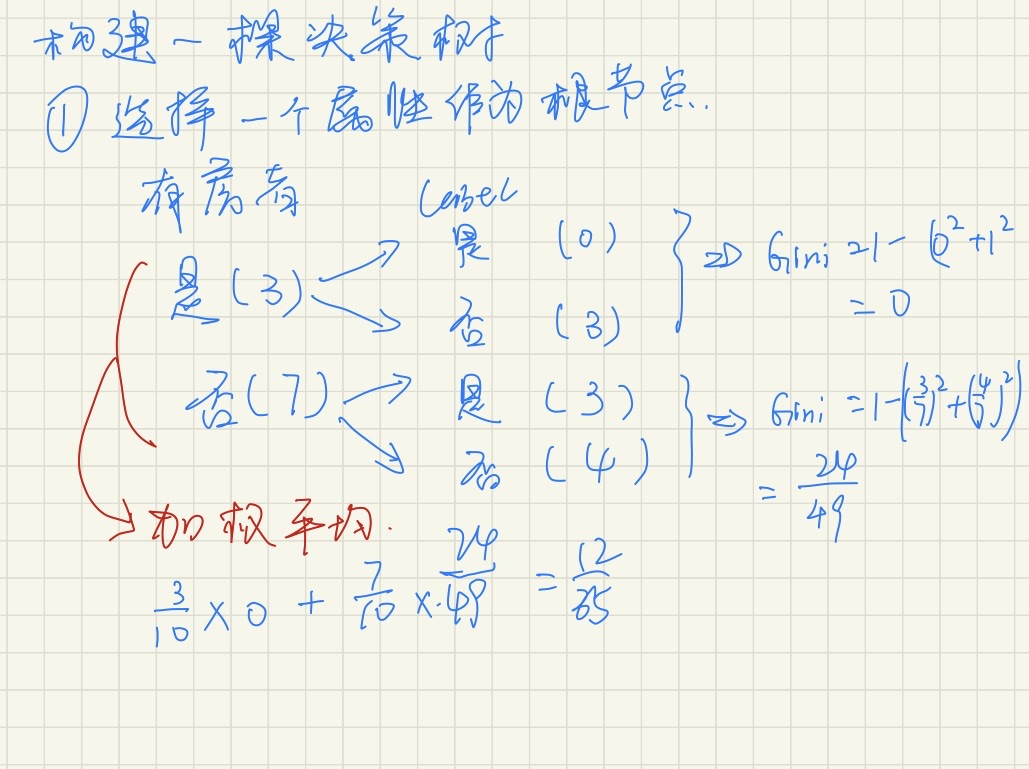 构建一棵决策树
① 选择一个属性作为根节点.
有房者 Label
是 (3) 是 (0) ⇒ Gini = 1 - (0² + 1²
否 (3) = 0
否 (7) 是 (3) ⇒ Gini = 1 - ((3/7)² + (4/7)²)
否 (4) = 24/49
加权平均.
3/10 × 0 + 7/10 × 24/49 = 12/35